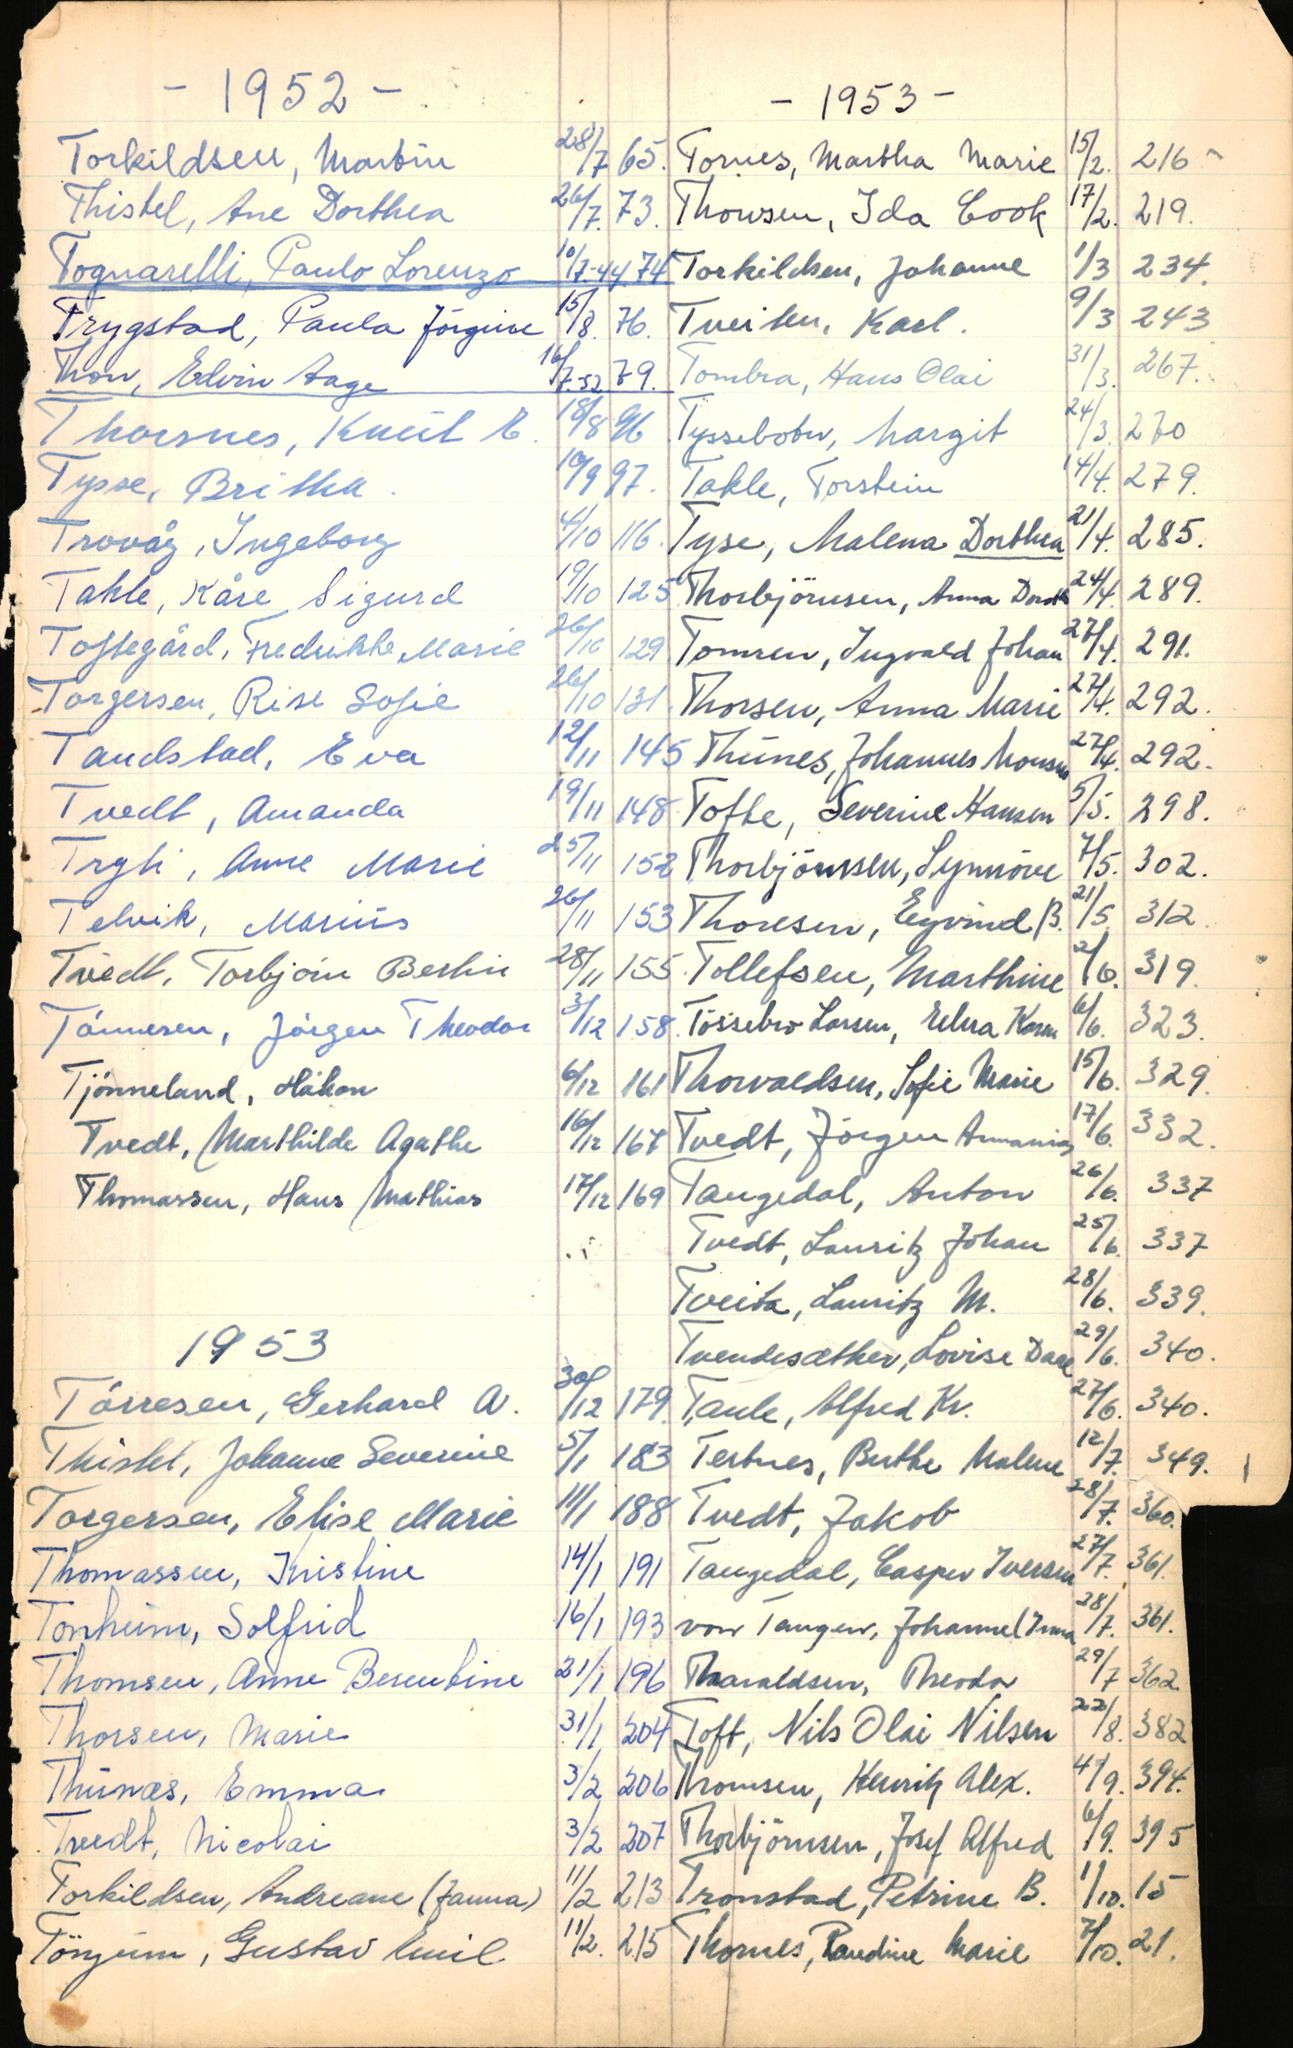 - 1952 -
Torkildsen, Martin 28/7 65.
Thistel, Ane Dorthea 26/7. 73.
Tognarelli, Paulo Lorenzo 10/7-44 74
Trygstad, Paula Jörgine 15/8. 76.
Thon, Edvin Aage 16/7-52 79.
Thorsnes, Knut E. 18/8 96
Tysse, Britha. 10/9 97.
Trovåg, Ingeborg 4/10 116.
Takle, Kåre Sigurd 19/10 125
Toftegård, Fredrikke Marie 26/10 129
Torgersen, Rise Sofie 26/10 131.
Tandstad, Eva 12/11 145
Tvedt, Amanda 19/11 148
Trgli, Anne Marie 25/11 152
Telvik, Marius 26/11 153
Tvedt, Torbjörn Bertin 28/11 155.
Tönnesen, Jörgen Theodor 3/12 158.
Tjönneland, Håkon 6/12 161
Tvedt, Marthilde Agathe 16/12 167
Thomassen, Hans Mathias 17/12 169
1953
Törresen, Gerhard A. 30/12 179.
Thistel, Johanne Severine 5/1 183
Torgersen, Elise Marie 11/1 188
Thomassen, Kristine 14/1 191
Tonheim, Solfrid 16/1 193
Thomsen, Anne Bersentine 21/1 196
Thorsen, Marie 31/1 204
Thunæs, Emma 3/2 206
Tvedt, Nicolai 3/2 207
Torkildsen, Andreane (Janna) 11/2 213
Gustav Emil 11/2. 215
- 1953 -
Tornes, Martha Marie 15/2. 216
Thowsen, Ida Cook 17/2. 219.
Torkildsen, Johanne 1/3 234.
Tveiten, Karl. 9/3 243
Tombra, Hans Olai 31/3. 267.
Tyssebotn, Margit 24/3. 270
Takle, Torstein 14/4. 279.
Tyse, Malena Dorthea 21/4. 285.
Thorbjörnsen, Anna Dorth 24/4. 289.
Tomren, Ingvald Johan 27/4. 291.
Thorsen, Anna Marie 27/4. 292.
Thunes, Johannes Monsen 27/4. 292.
Tofte, Severine Hansen 5/5. 298.
Thorbjörnsen, Synnöve 7/5. 302.
Thoresen, Eyvind B. 21/5. 312
Tollefsen, Marthine 2/6. 319.
Tössebro Larsen, Elna Karen 6/6. 323.
Thorvaldsen, Sofie Marie 15/6. 329.
Tvedt, Jörgen Annanias 17/6. 332.
Tangedal, Anton 26/6. 337
Tvedt, Lauritz Johan 25/6. 337
Tveita, Lauritz M. 28/6. 339.
Tvendesæther, Lovise Dale 29/6. 340.
Taule, Alfred Kr. 27/6. 340.
Tertnes, Berthe Malene 12/7. 349.
Tvedt, Jakob 28/7. 360.
Tangedal, Casper Iversen 27/7. 361.
von Tangen, Johanne (Inna 28/7. 361.
Tharaldsen, Theodor 29/7 362
Toft, Nils Olai Nilsen 22/8. 382
Thomsen, Henrik Alex. 4/9. 394.
Thorbjörnsen, Josef Alfred 6/9. 395
Tronstad, Petrine B. 1/10. 15
Thornes, Paudine Marie 7/10. 21.